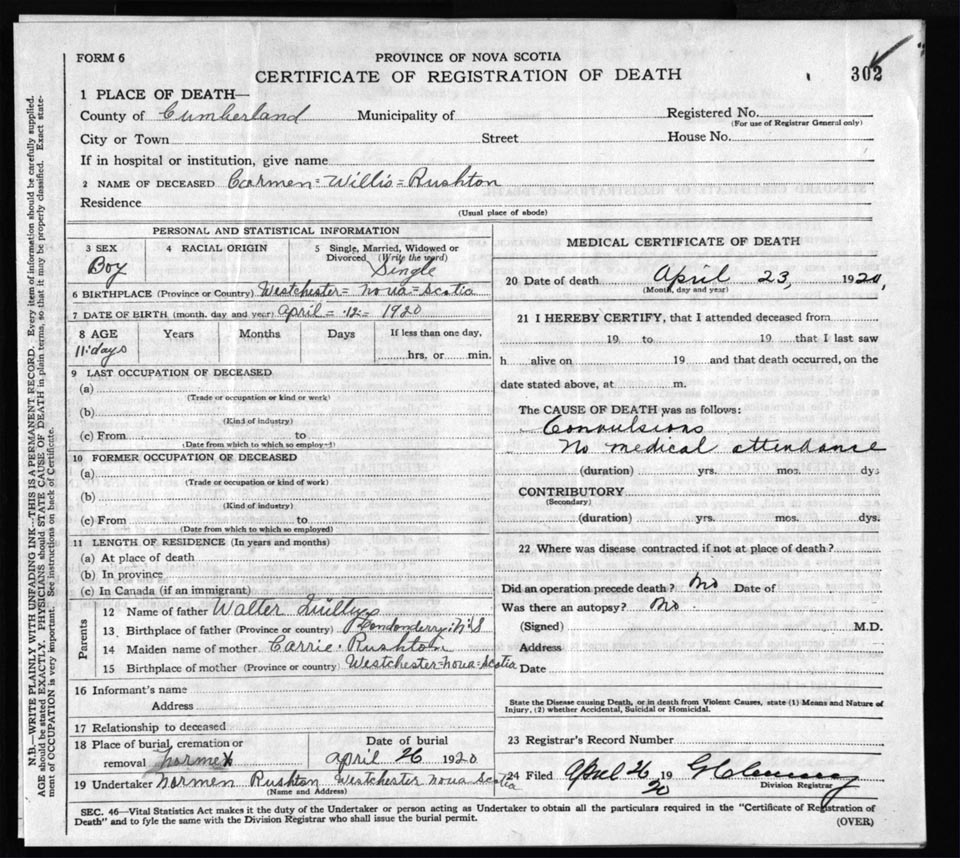 FORM 6
PROVINCE OF NOVA SCOTIA
CERTIFICATE OF REGISTRATION OF DEATH
302
1 PLACE OF DEATH—
County of Cumberland Municipality of Registered No.
(For use of Registrar General only)
City or Town Street House No.
If in hospital or institution, give name
2 NAME OF DECEASED Carmen = Willis = Rushton
Residence
(Usual place of abode)
PERSONAL AND STATISTICAL INFORMATION
3 SEX 4 RACIAL ORIGIN 5 Single, Married, Widowed or
Divorced (Write the word)
Boy Single
6 BIRTHPLACE (Province or Country) Westchester = Nova = Scotia
7 DATE OF BIRTH (month, day and year) April = 12 = 1920
8 AGE Years Months Days If less than one day,
11 days hrs. or min.
9 LAST OCCUPATION OF DECEASED
(a)
(Trade or occupation or kind or work)
(b)
(Kind of industry)
(c) From to
(Date from which to which so employed)
10 FORMER OCCUPATION OF DECEASED
(a)
(Trade or occupation or kind of work)
(b)
(Kind of industry)
(c) From to
(Date from which to which so employed)
11 LENGTH OF RESIDENCE (In years and months)
(a) At place of death
(b) In province
(c) In Canada (if an immigrant)
Parents
12 Name of father Walter
13 Birthplace of father (Province or country) Londonderry N S
14 Maiden name of mother Carrie Rushton
15 Birthplace of mother (Province or country) Westchester = Nova = Scotia
16 Informant's name
Address
17 Relationship to deceased
18 Place of burial, cremation or Date of burial
removal April 26 1920
19 Undertaker Normen Rushton Westchester Nova Scotia
(Name and Address)
MEDICAL CERTIFICATE OF DEATH
20 Date of death April 23, 1920,
(Month, day and year)
21 I HEREBY CERTIFY, that I attended deceased from
19 to 19 that I last saw
h alive on 19 and that death occurred, on the
date stated above, at m.
The CAUSE OF DEATH was as follows:
Convulsions
No medical attendance
(duration) yrs. mos. dys
CONTRIBUTORY
(Secondary)
(duration) yrs. mos. dys.
22 Where was disease contracted if not at place of death?
Did an operation precede death? No Date of
Was there an autopsy? No
(Signed) M.D.
Address
Date
State the Disease causing Death, or in death from Violent Causes, state (1) Means and Nature of
Injury, (2) whether Accidental, Suicidal or Homicidal.
23 Registrar's Record Number
24 Filed April 26 19 20
Division Registrar
SEC. 46—Vital Statistics Act makes it the duty of the Undertaker or person acting as Undertaker to obtain all the particulars required in the "Certificate of Registration of
Death" and to fyle the same with the Division Registrar who shall issue the burial permit. (OVER)
N.B.—WRITE PLAINLY WITH UNFADING INK—THIS IS A PERMANENT RECORD. Every item of information should be carefully supplied.
AGE should be stated EXACTLY. PHYSICIANS should STATE CAUSE OF DEATH in plain terms, so that it may be properly classified. Exact state-
ment of OCCUPATION is very important. See instructions on back of Certificate.